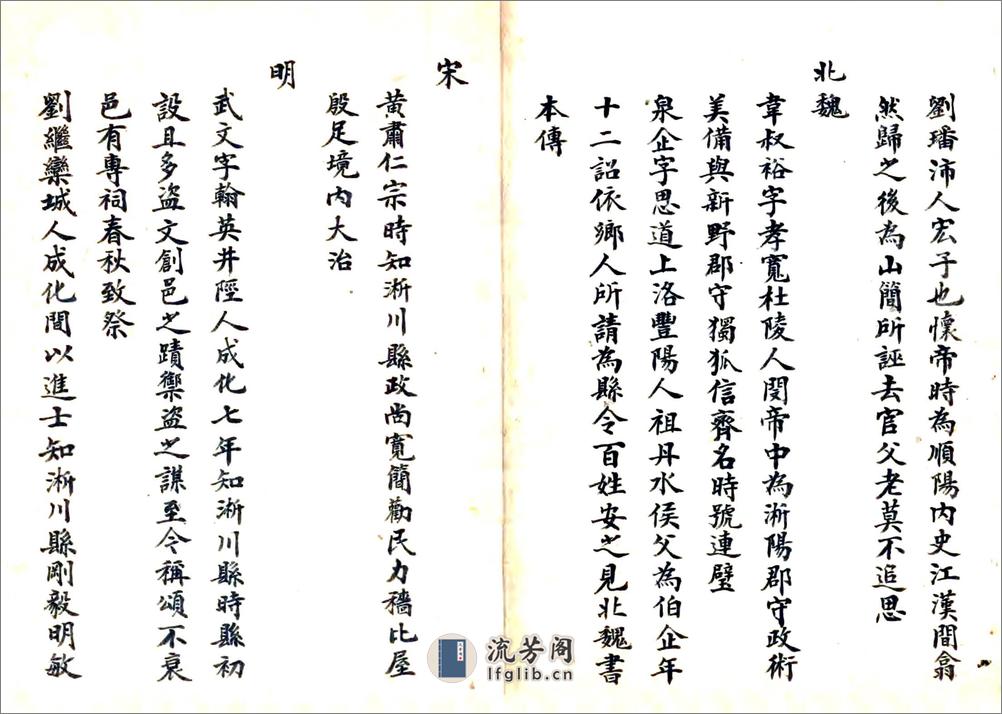 劉璠沛人宏子也懷帝時為順陽内史江漢間翕
然歸之後為山簡所誣去官父老莫不追思
北魏
韋叔裕字孝寬杜陵人閔帝中為淅陽郡守政術
美備與新野郡守獨狐信齊名時號連璧
泉企字思道上洛豐陽人祖丹水侯父為伯企年
十二詔依鄉人所請為縣令百姓安之見北魏書
本傳
宋
黃肅仁宗時知淅川縣政尚寬簡勸民力穡比屋
殷足境内大治
明
武文字翰英井陘人成化七年知淅川縣時縣初
設且多盜文創邑之蹟禦盜之謀至今稱頌不衰
邑有專祠春秋致祭
劉繼欒城人成化間以進士知淅川縣剛毅明敏
流芳阁
lfglib.cn